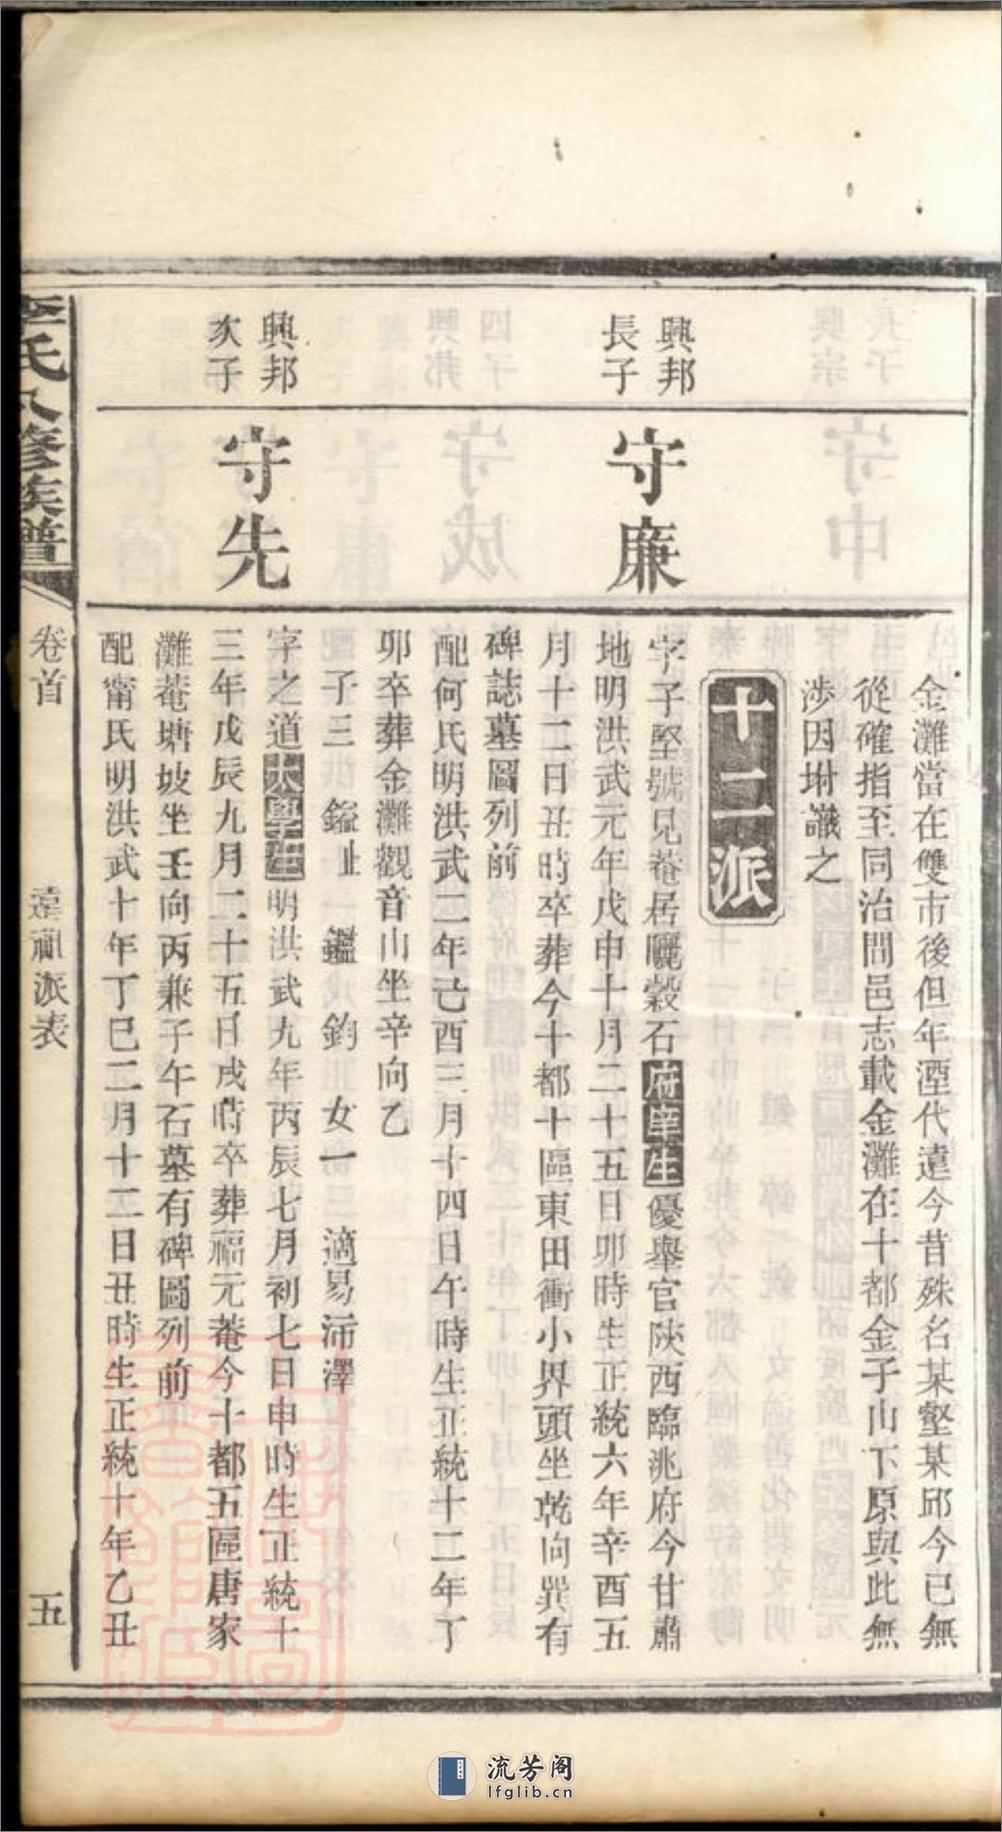 金灘當在雙市後但年湮代遠今昔殊名某壑某邱今已無
從確指至同治間邑志載金灘在十都金子山下原與此無
涉因坿識之
十二派
興邦
長子
守廉
字子堅號見菴居曬穀石府庠生優舉官陝西臨洮府今甘肅
地明洪武元年戊申十月二十五日卯時生正統六年辛酉五
月十二日丑時卒葬今十都十區東田衝小界頭坐乾向巽有
碑誌墓圖列前
配何氏明洪武二年己酉三月十四日午時生正統十二年丁
卯卒葬金灘觀音山坐辛向乙
子三 鎰止 鑑 鈞 女一 適易沛澤
興邦
次子
守先
字之道太學生明洪武九年丙辰七月初七日申時生正統十
三年戊辰九月二十五日戌時卒葬福元菴今十都五區唐家
灘菴塘坡坐壬向丙兼子午石墓有碑圖列前
配甯氏明洪武十年丁巳二月十二日丑時生正統十年乙丑
李氏八修族譜
卷首
遠祖派表
五
流芳阁
lfglib.cn